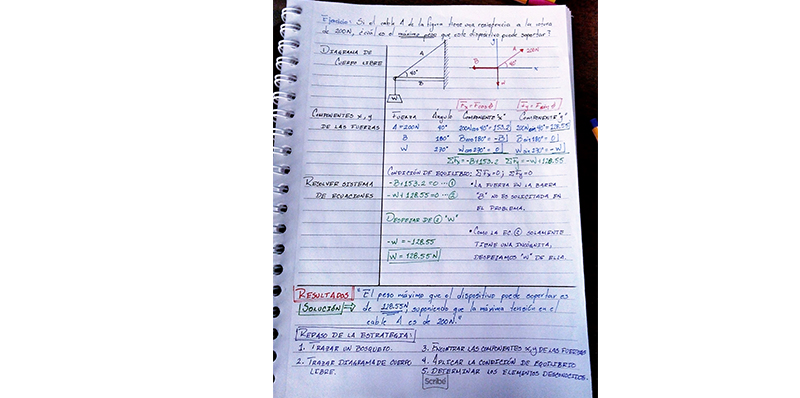 Ejercicio: Si el cable A de la figura tiene una resistencia a la rotura
de 200N, ¿cuál es el máximo peso que este dispositivo puede soportar?
DIAGRAMA DE
CUERPO LIBRE
A
40°
B
W
y
A 200N
B
40°
x
W
Fx = Fcosϕ
Fy = Fsenϕ
COMPONENTES X, Y
DE LAS FUERZAS
FUERZA Ángulo COMPONENTE "x" COMPONENTE "y"
A = 200N 40° 200Ncos40° = 153.2 200Nsen40° = 128.55
B 180° Bcos180° = -B Bsen180° = 0
W 270° Wcos270° = 0 Wsen270° = -W
ΣFx = -B+153.2 ΣFy = -W+128.55
CONDICIÓN DE EQUILIBRIO: ΣFx = 0; ΣFy = 0
RESOLVER SISTEMA
DE ECUACIONES
-B+153.2 = 0 ... ①
-W+128.55 = 0 ... ②
• LA FUERZA EN LA BARRA
"B" NO ES SOLICITADA EN
EL PROBLEMA.
DESPEJAR DE ② "W"
-W = -128.55
W = 128.55N
• COMO LA EC. ② SOLAMENTE
TIENE UNA INCÓGNITA,
DESPEJAMOS "W" DE ELLA.
RESULTADOS
SOLUCIÓN ⇒
"El peso máximo que el dispositivo puede soportar es
de 128.55N, suponiendo que la máxima tensión en el
cable A es de 200N."
REPASO DE LA ESTRATEGIA:
1. TRAZAR UN BOSQUEJO.
2. TRAZAR DIAGRAMA DE CUERPO
LIBRE.
3. ENCONTRAR LAS COMPONENTES X, Y DE LAS FUERZAS
4. APLICAR LA CONDICIÓN DE EQUILIBRIO
5. DETERMINAR LOS ELEMENTOS DESCONOCIDOS.
Scribe